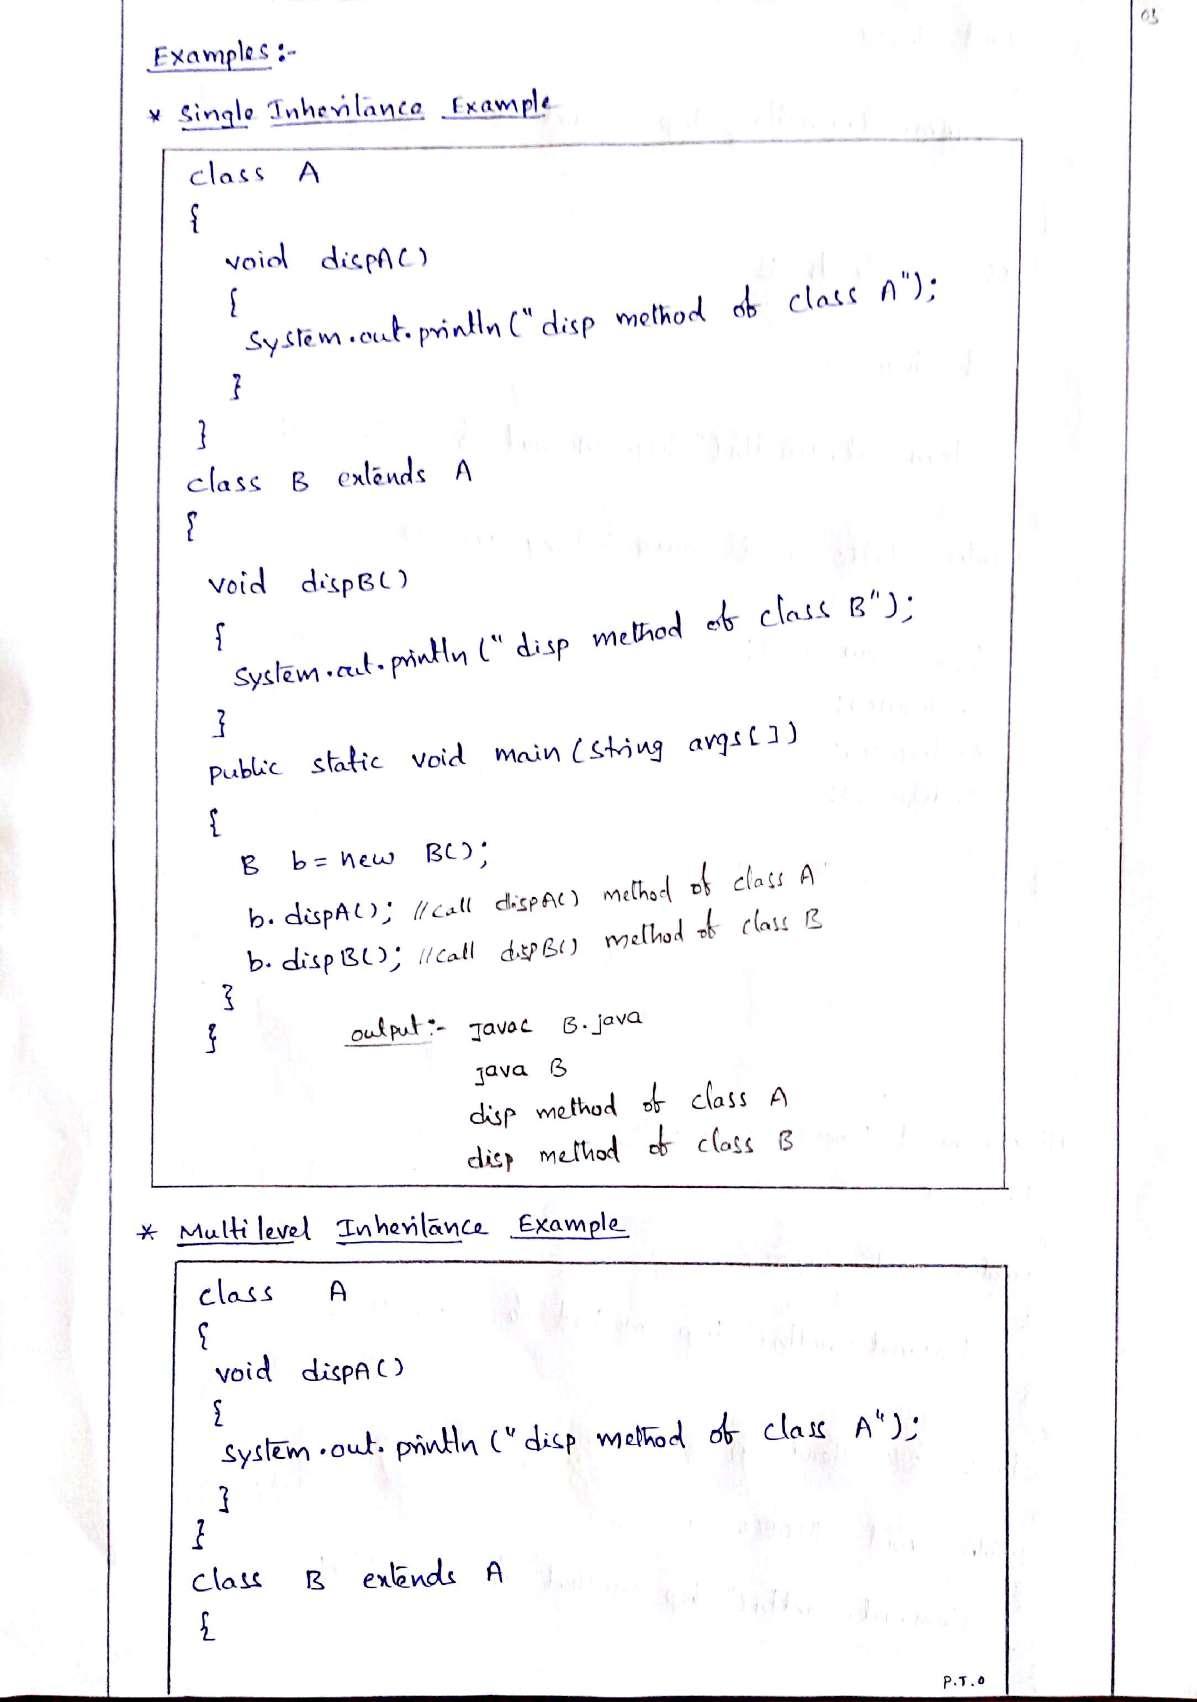 03
Examples :-
* Single Inheritance Example
class A
{
void dispA()
{
System.out.println("disp method of class A");
}
}
class B extends A
{
void dispB()
{
System.out.println("disp method of class B");
}
public static void main(String args[])
{
B b = new B();
b.dispA(); //call dispA() method of class A
b.dispB(); //call dispB() method of class B
}
}
output :- javac B.java
java B
disp method of class A
disp method of class B
* Multilevel Inheritance Example
class A
{
void dispA()
{
System.out.println("disp method of class A");
}
}
class B extends A
{
P.T.O